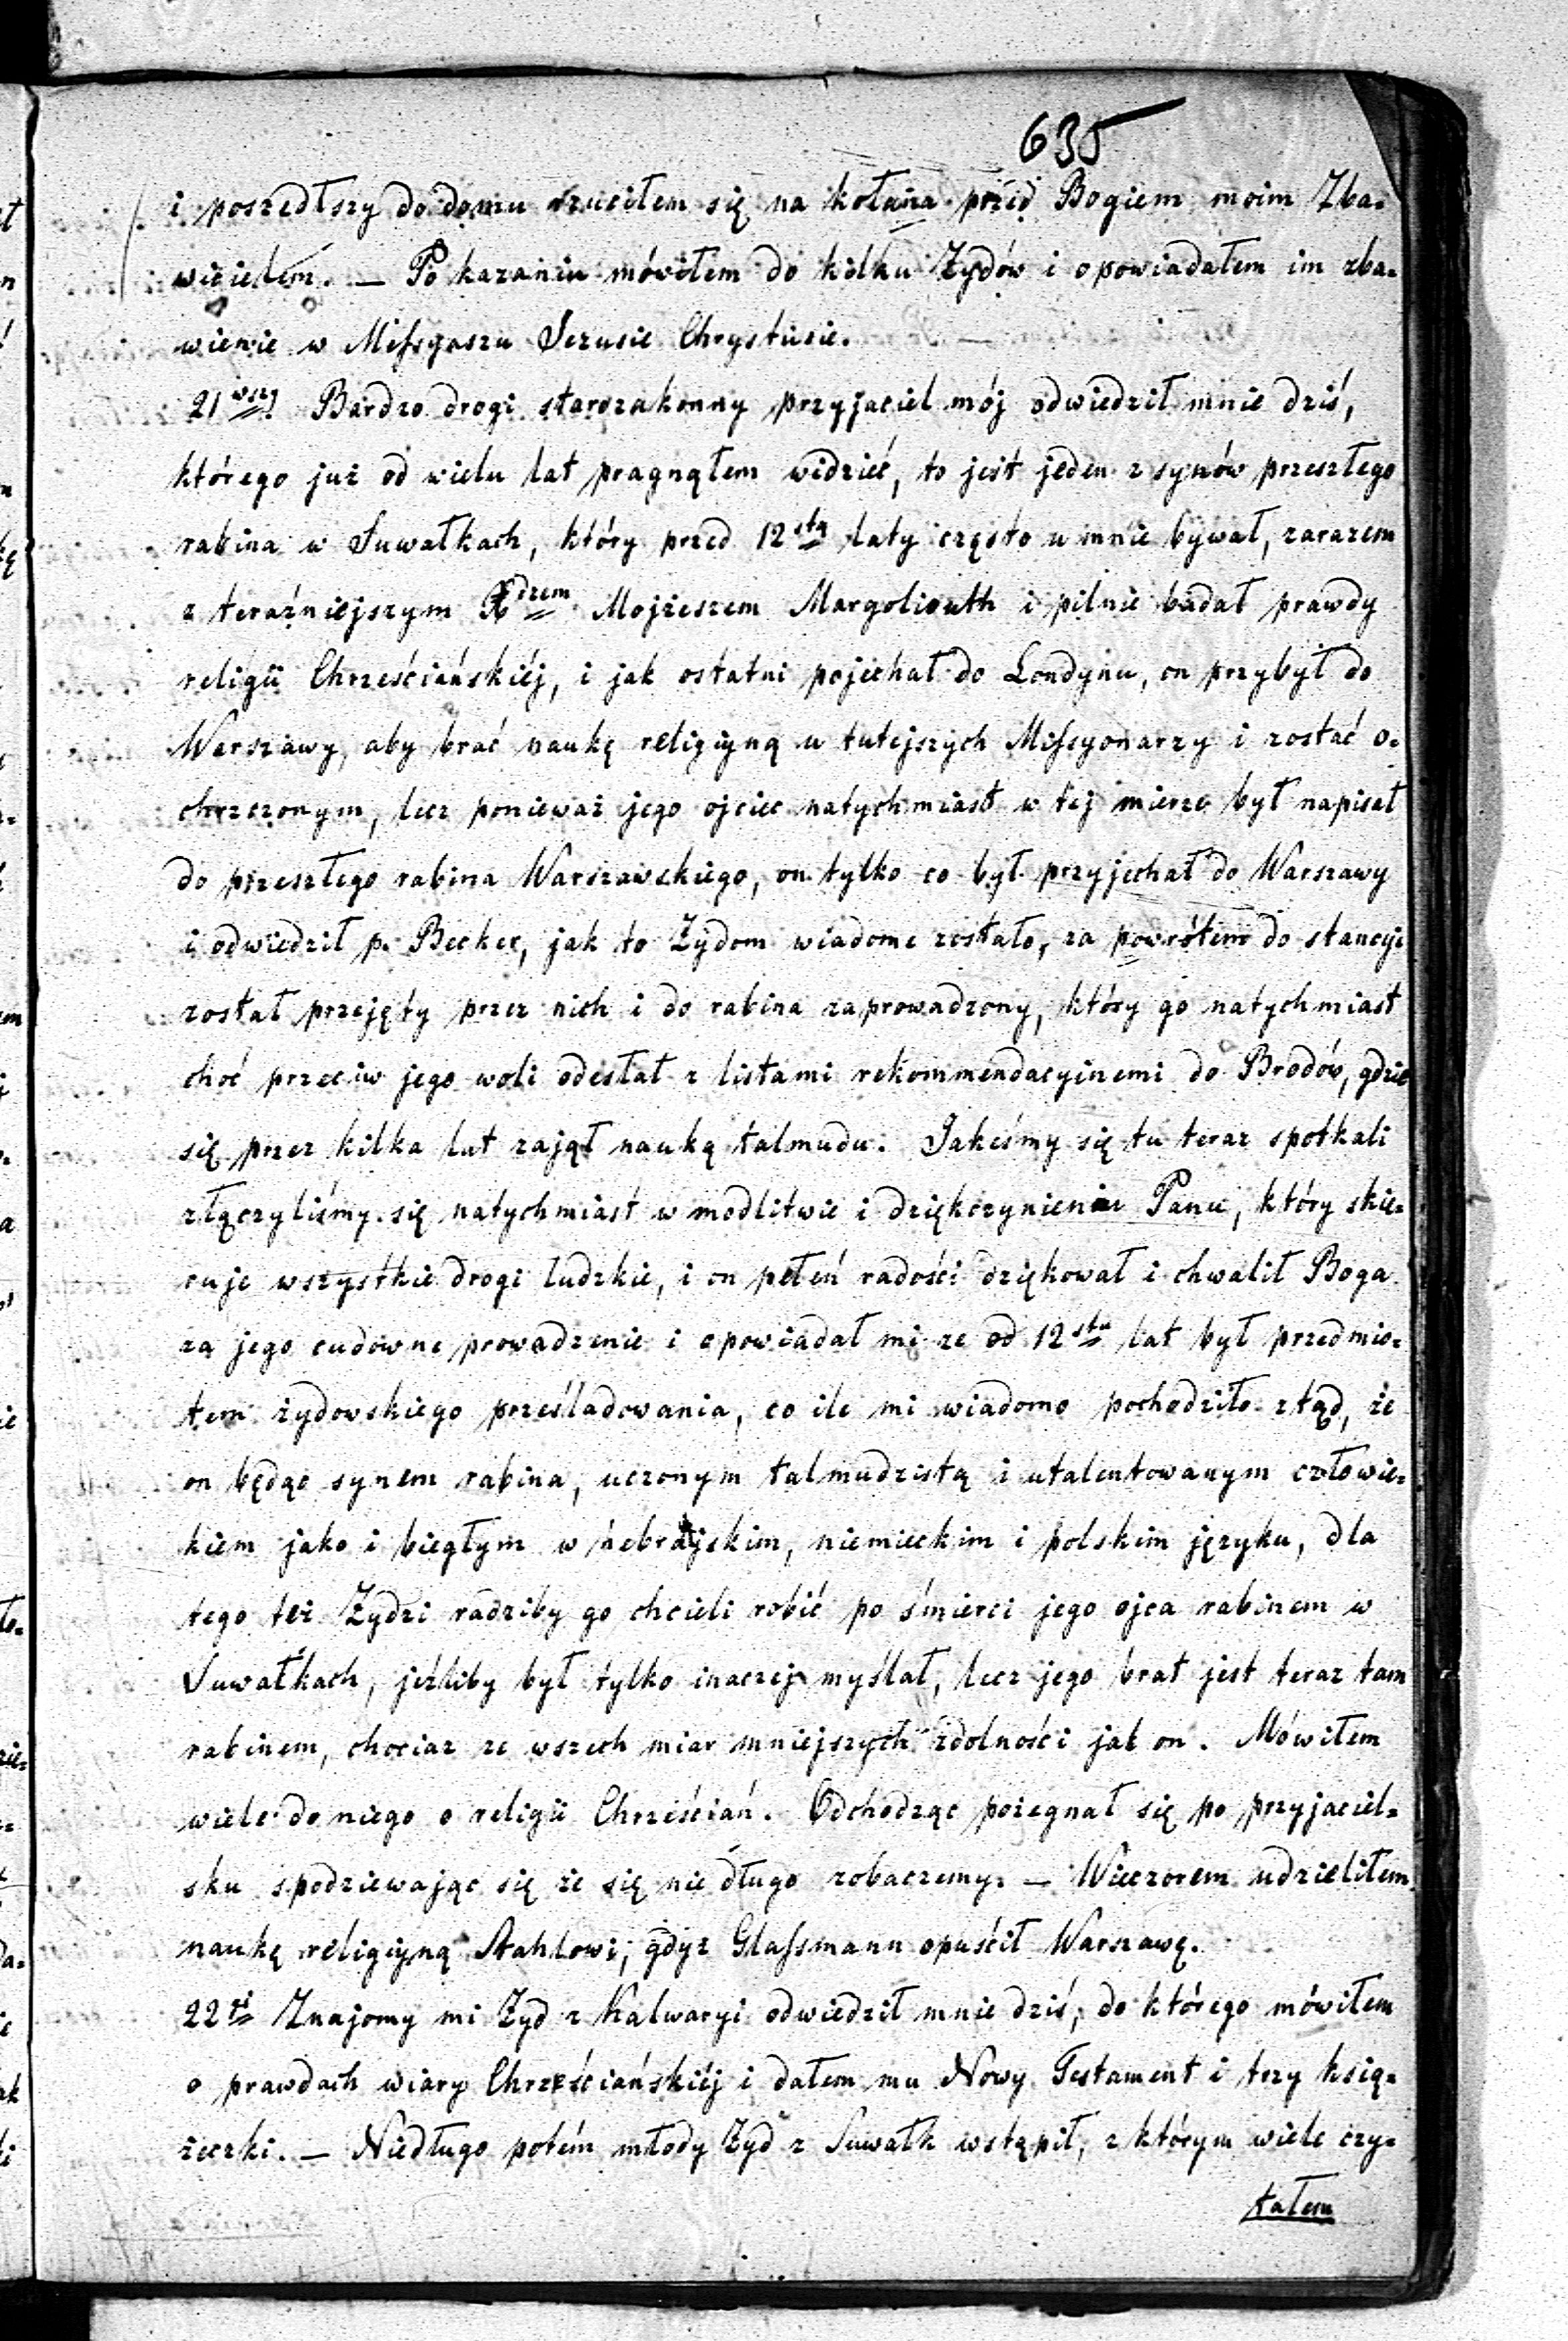 635
i poszedłszy do domu rzuciłem się na kolana przed Bogiem moim Zba=
wicielem. — Po kazaniu mówiłem do kilku Żydów i opowiadałem im zba=
wienie w Missyaszu Jezusie Chrystusie.
21wszy Bardzo drogi starozakonny przyjaciel mój odwiedził mnie dziś,
którego już od wielu lat pragnąłem widzieć, to jest jeden z synów przeszłego
rabina w Suwałkach, który przed 12stą laty często u mnie bywał, zarazem
z teraźniejszym Xdzem Mojżeszem Margoliouth i pilnie badał prawdy
religii Chrześciańskiéj, i jak ostatni pojechał do Londynu, on przybył do
Warszawy, aby brać naukę religiyną u tutejszych Missyonarzy i zostać o=
chrzczonym, lecz ponieważ jego ojciec natychmiast w tej mierze był napisał
do przeszłego rabina Warszawskiego, on tylko co był przyjechał do Warszawy
i odwiedził p. Becker, jak to Żydom wiadome zostało, za powrótem do stancyi
został przejęty przez nich i do rabina zaprowadzony, który go natychmiast
choć przeciw jego woli odesłał z listami rekommendacyinemi do Brodów, gdzie
się przez kilka lat zajął nauką talmudu. Jakeśmy się tu teraz spotkali
złączyliśmy się natychmiast w modlitwie i dziękczynieniu Panu, który skie=
ruje wszystkie drogi ludzkie, i on pełen radości dziękował i chwalił Boga
za jego cudowne prowadzenie i opowiadał mi ze od 12stu lat był przedmio=
tem żydowskiego prześladowania, co ile mi wiadomo pochodziło ztąd, że
on będąc synem rabina, uczonym talmudzistą i utalentowanym człowie=
kiem jako i biegłym w hebrajskim, niemieckim i polskim języku, dla
tego też Żydzi radziby go chcieli robić po śmierci jego ojca rabinem w
Suwałkach, jeźliby był tylko inaczej myślał, lecz jego brat jest teraz tam
rabinem, chociaz ze wszech miar mniejszych zdolności jak on. Mówiłem
wiele do niego o religii Chrześciań. Odchodząc pożegnał się po przyjaciel=
sku spodziewając się że się nie długo zobaczemy. — Wieczorem udzieliłem
naukę religiyną Stahlowi, gdyz Glassmann opuścił Warszawę.
22gi Znajomy mi Żyd z Kalwaryi odwiedził mnie dziś, do którego mówiłem
o prawdach wiary Chrześciańskiéj i dałem mu Nowy Testament i trzy ksią=
żeczki. — Niedługo potém młody Żyd z Suwałk wstąpił, z którym wiele czy=
tałem